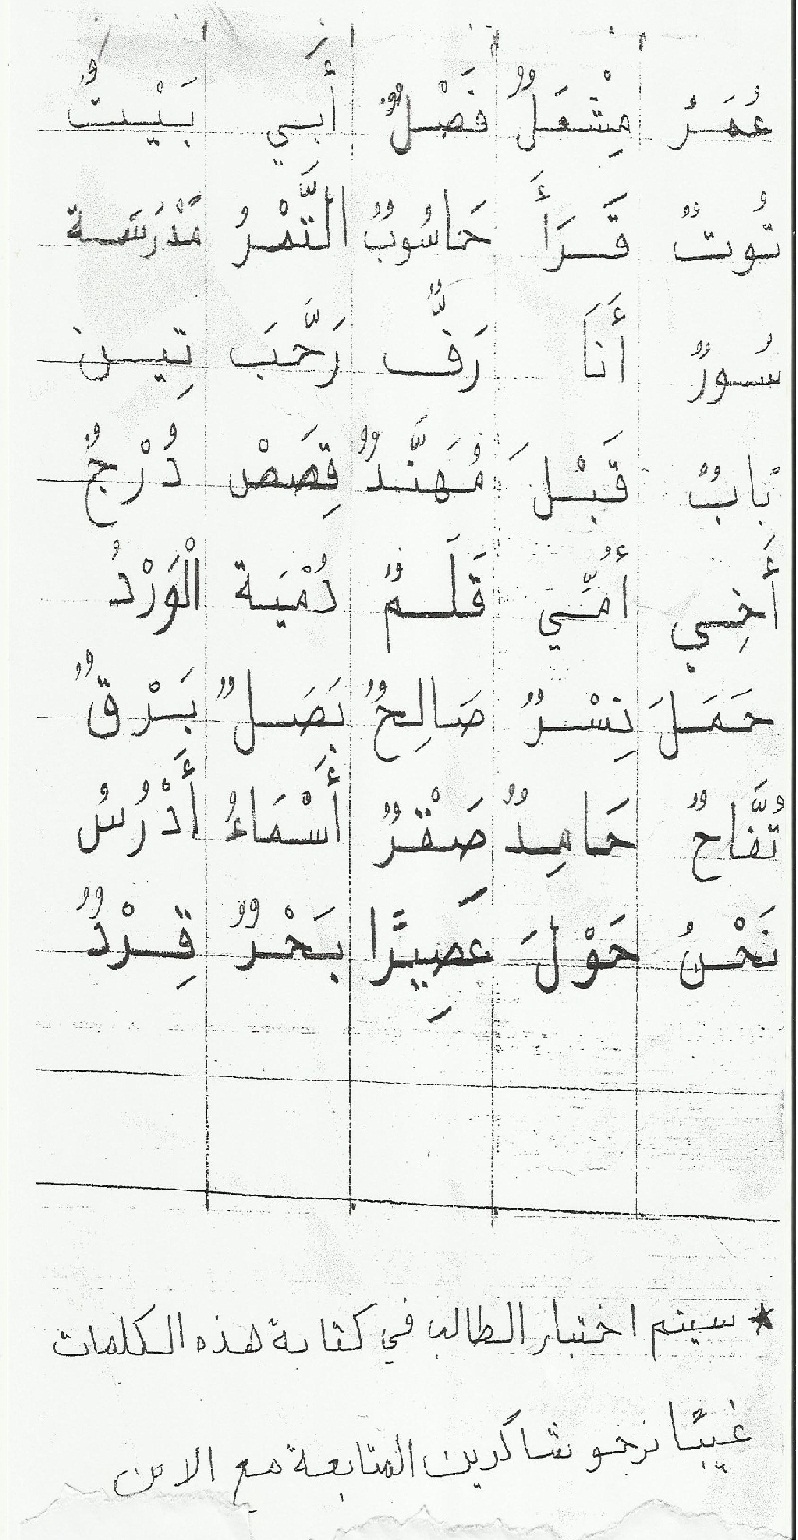 عُمَرُ مِشْعَلٌ فَصْلٌ أَبِي بَيْتٌ
تُوتٌ قَرَأَ حَاسُوبٌ التَّمْرُ مَدْرَسَة
سُورٌ أَنَا رَفٌّ رَحَّبَ تِين
بَابٌ قَبْلَ مُهَنَّدٌ قِصَصْ دُرْجٌ
أَخِي أُمِّي قَلَمٌ دُمْيَة الْوَرْدُ
حَمَلَ نِسْرٌ صَالِحٌ بَصَلٌ بَرْقٌ
تُفَّاحٌ حَامِدٌ صَقْرٌ أَسْمَاءُ أَدْرُسُ
نَحْنُ حَوْلَ عَصِيرًا بَحْرٌ قِرْدٌ
* سيتم اختبار الطالب في كتابة هذه الكلمات
غيبًا نرجو شاكرين المتابعة مع الابن